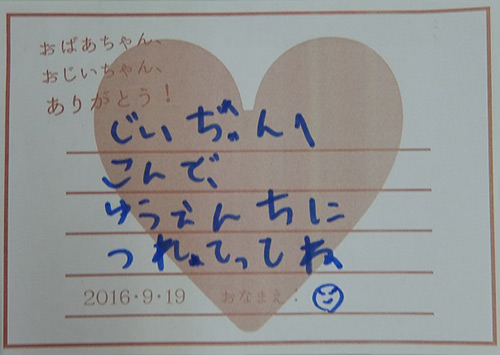 おばあちゃん、
おじいちゃん、
ありがとう！
じいぢゃんへ
こんど、
ゆうえんちに
つれてってね
2016・9・19 おなまえ：